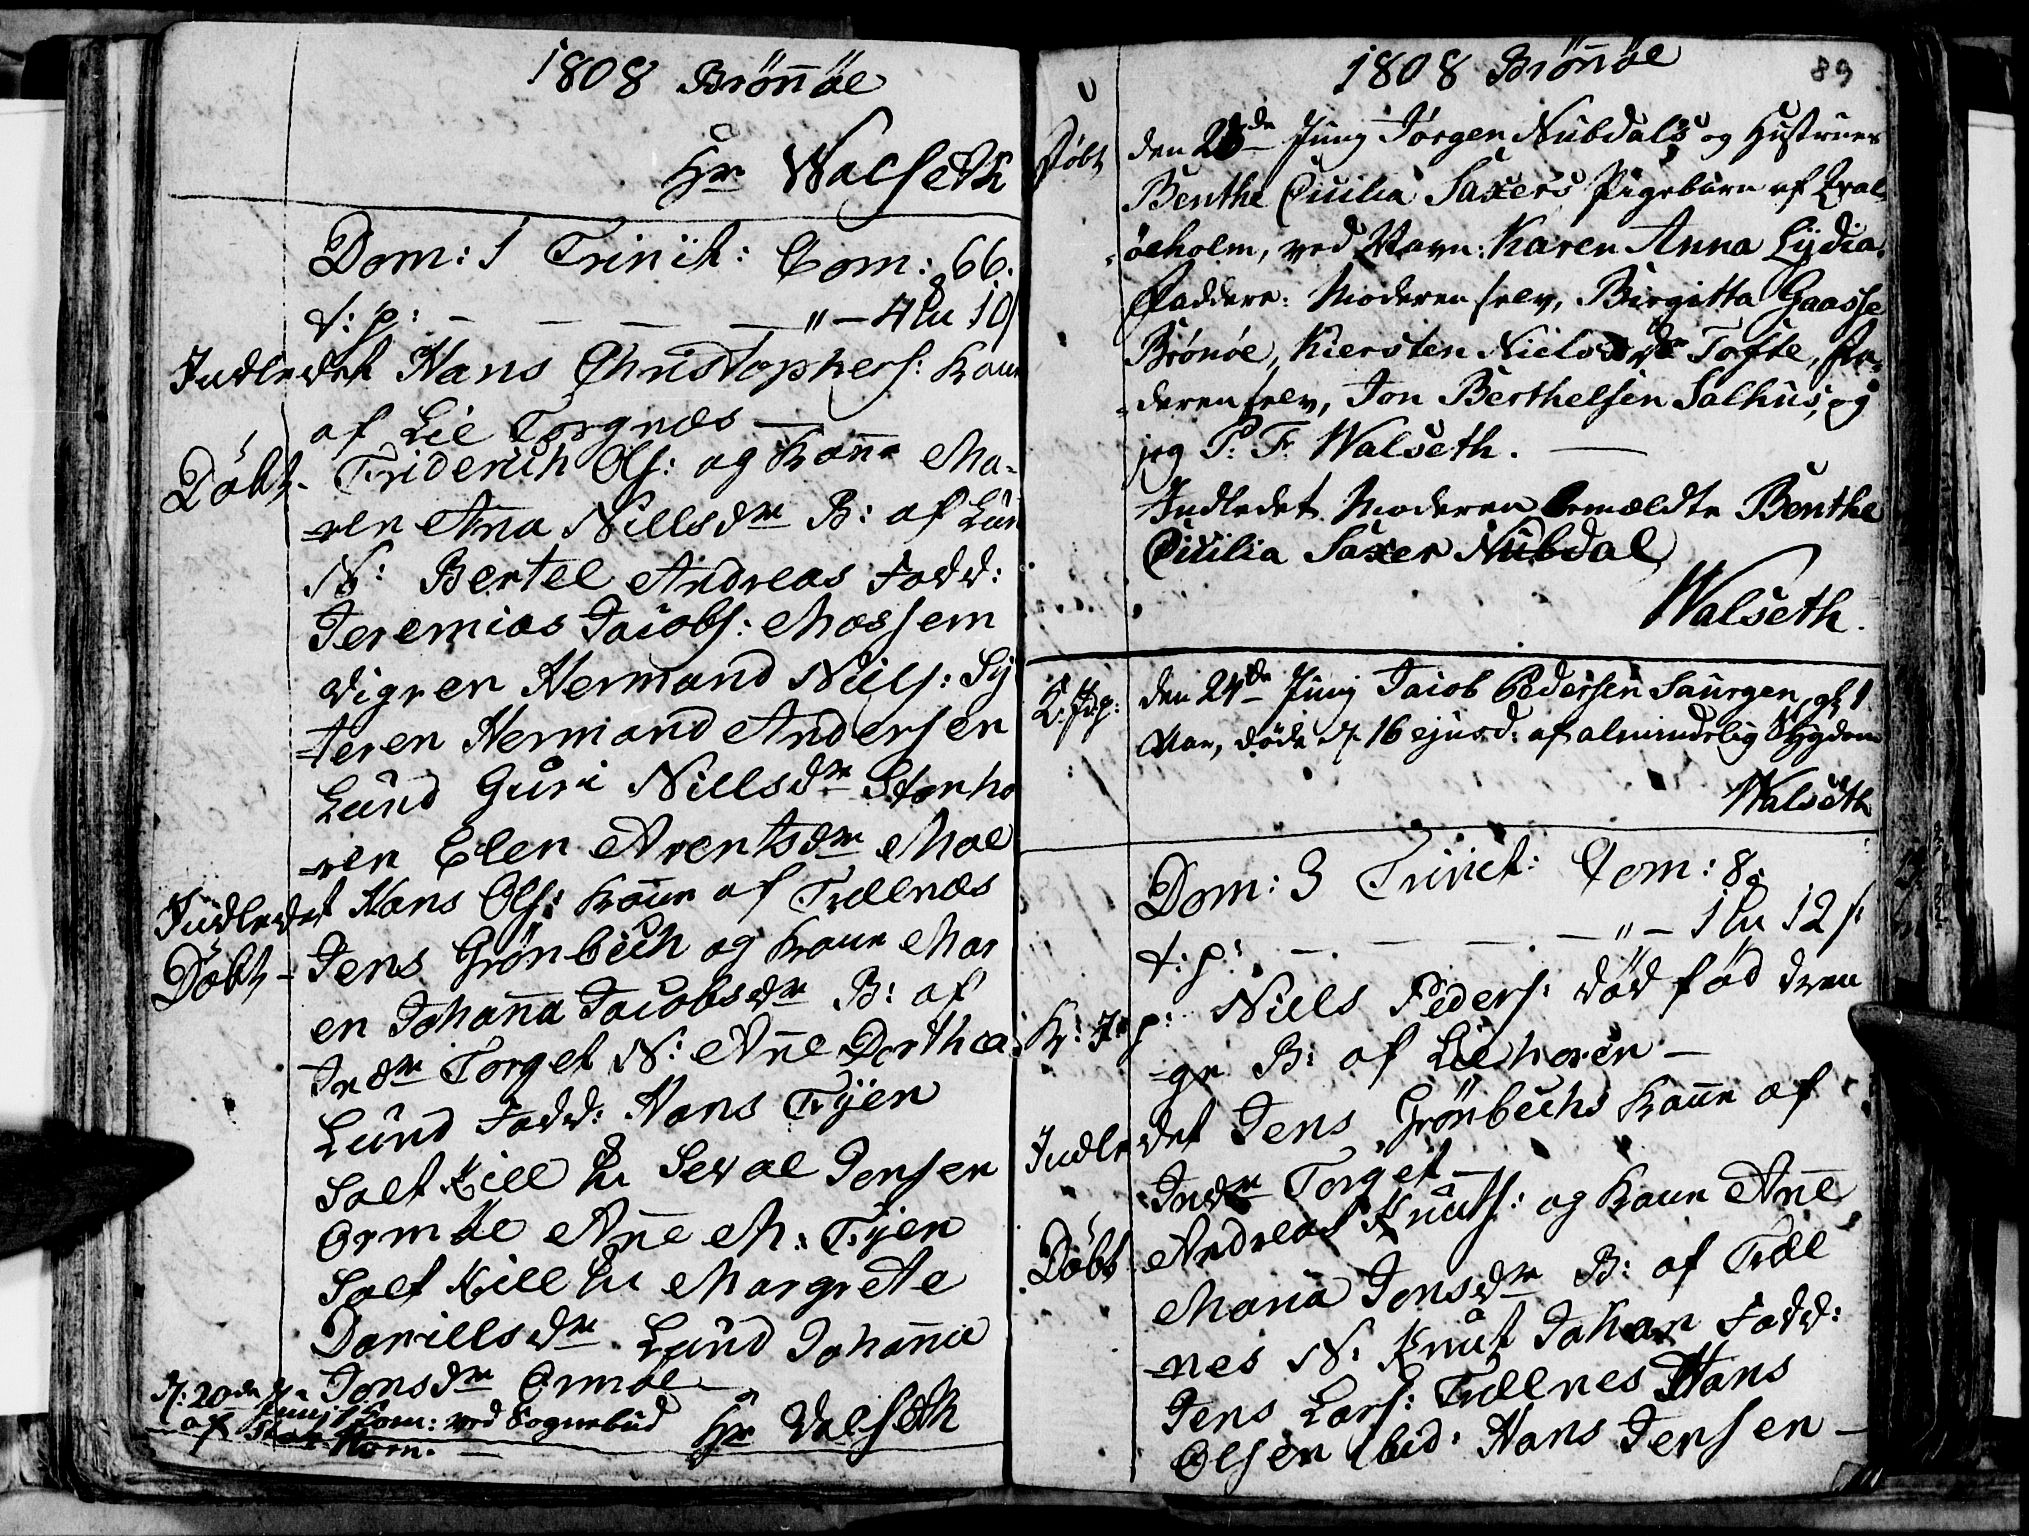 1808 Brönöe
Hr Walseth
Dom: 1 Trinit: Com: 66.
t: p: — — — — " — 4 10
Indledet Hans Christophers: Kone
af Lie Torgnæs —
Döbt - Friderich Ols: og Kone Ma-
-ren Ana Nillsdr B: af Lun
N: Bertel Andreas Fadd:
Jeremias Jacobs: Mossem
vigren Hermand Niels: Sy
-teren Hermand Andersen
Lund Guri Nillsdr Storho
-ren Elen Arentsdr Moe
Indledet Hans Ols: Kone af Trælnæs
Döbt - Jens Grönbech og Kone Mar
en Johanna Jacobsdr B: af
Indr Torget N: Ane Dorthea
Lund Fadd: Hans Tijen
Salt Kill Seval Jensen
Ormöe Ane M: Tijen
Salt Kill Margrete
Danillsdr Lund Johanna
Jonsdr Ormöe
d: 20de Junj 1 Com: ved Sognebud
af Stor Horn. —
Hr Valseth
1808 Brönöe
89
Döbt
den 26de Junj Jørgen Nubdals og Hustrues
Benthe Cicilia Saxers Pigebarn af Qval-
-öeholm, ved Navn: Karen Anna Lydia.
Faddere: Moderen selv, Birgitta Gaasse
Brönöe, Kiersten Nielsdr Tofte, Fa-
-deren selv, Jon Berthelsen Salhus, og
jeg P. F. Walseth. —
Indledet Moderen bemældte Benthe
Cicilia Saxer Nubdal
Walseth.
K. J. p: den 24de Junj Jacob Pedersen Saurgen, gl. 1
Aar, døde d. 16 ejusd: af almindelig Sygdom
Walseth
Dom: 3 Trinit: Com: 8.
t: p: — — — — " — 1 12 s:
K: J: p: Niels Peders: död föd dren
-ge B: af Liehoren —
Indledet Jens Grönbechs Kone af
Indr Torget —
Döbt Andreas Knuts: og Kone Ane
Maria Jonsdr B: af Træl
-nes N: Knut Johan Fadd:
Jens Lars: Trælnes Hans
Olsen ibid: Hans Jensen —